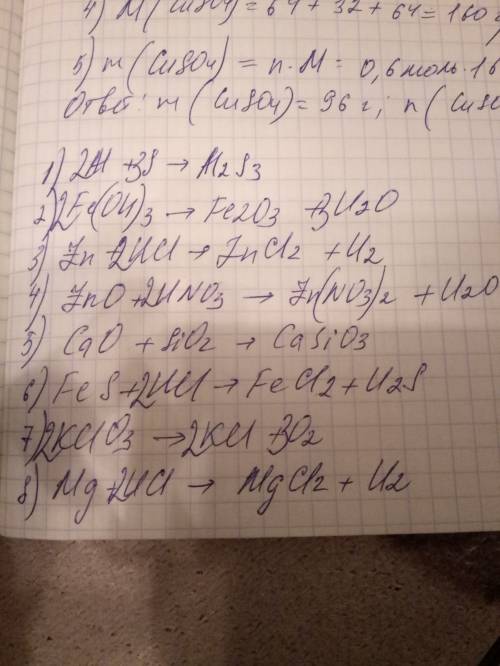 4) M(CuSO4) = 64 + 32 + 64 = 160
5) m(CuSO4) = n·M = 0,6моль·16
Ответ: m(CuSO4) = 96 г; n(CuSO
1) 2Al + 3S → Al2S3
2) 2Fe(OH)3 → Fe2O3 + 3H2O
3) Zn + 2HCl → ZnCl2 + H2
4) ZnO + 2HNO3 → Zn(NO3)2 + H2O
5) CaO + SiO2 → CaSiO3
6) FeS + 2HCl → FeCl2 + H2S
7) 2KClO3 → 2KCl + 3O2
8) Mg + 2HCl → MgCl2 + H2